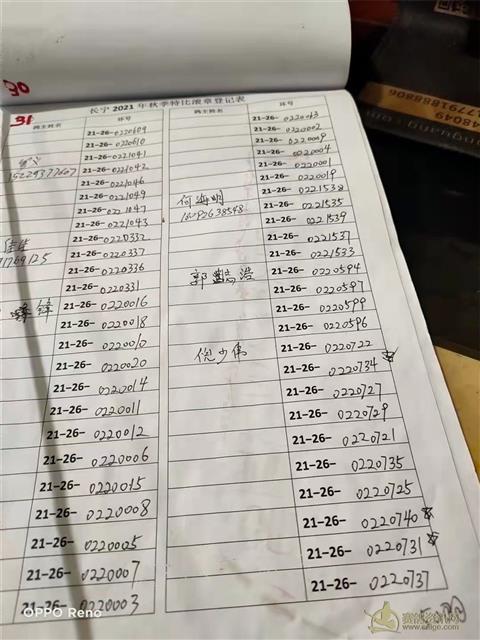 30
31
长宁2021年秋季特比滚章登记表
鸽主姓名 环号
21-26-0220609
21-26-0220610
21-26-0221041
15229377607 21-26-0221042
21-26-0221046
21-26-0221049
21-26-0221047
21-26-0221043
21-26-0220332
21-26-0220337
21-26-0220336
21-26-0220331
锋 21-26-0220016
21-26-0220018
21-26-0220010
21-26-0220020
21-26-0220014
21-26-0220011
21-26-0220012
21-26-0220006
21-26-0220015
21-26-0220008
21-26-0220005
21-26-0220007
21-26-0220003
鸽主姓名 环号
21-26-0220043
21-26-0220002
21-26-0220009
21-26-0220004
21-26-0220001
21-26-0220019
何海明 21-26-0221538
21-26-0221535
21-26-0221539
21-26-0221537
21-26-0221533
郭 浩 21-26-0220594
21-26-0220597
21-26-0220599
21-26-0220596
倪少伟 21-26-0220722
21-26-0220734
21-26-0220727
21-26-0220729
21-26-0220721
21-26-0220735
21-26-0220725
21-26-0220740
21-26-0220731
21-26-0220737
OPPO Reno